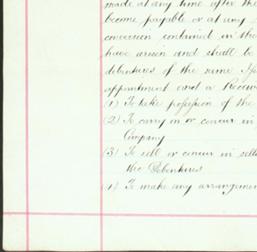 made at any time after the
become payable or at any
concession contained in the
have arisen and shall be
debentures of the same
appointment and a Receiv
(1) To take possession of the
(2) To carry on or concur in
Company
(3) To sell or concur in sell
the Debentures
(4) To make any arrangemen